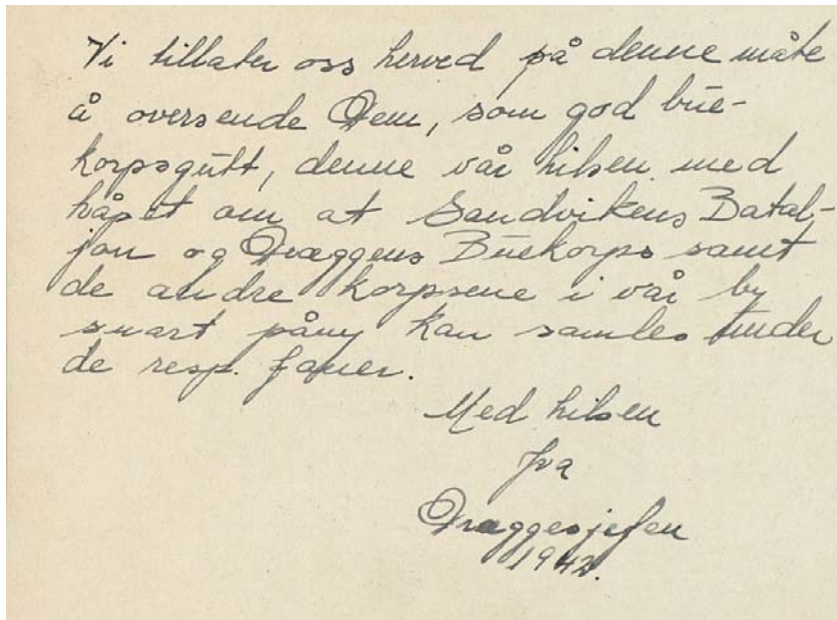 Vi tillater oss herved på denne måte
å oversende Dem, som god bue-
korpsgutt, denne vår hilsen med
håpet om at Sandvikens Batal-
jon og Dræggens Buekorps samt
de andre korpsene i vår by
snart påny kan samles under
de resp. faner.
Med hilsen
fra
Dræggesjefen
1942.